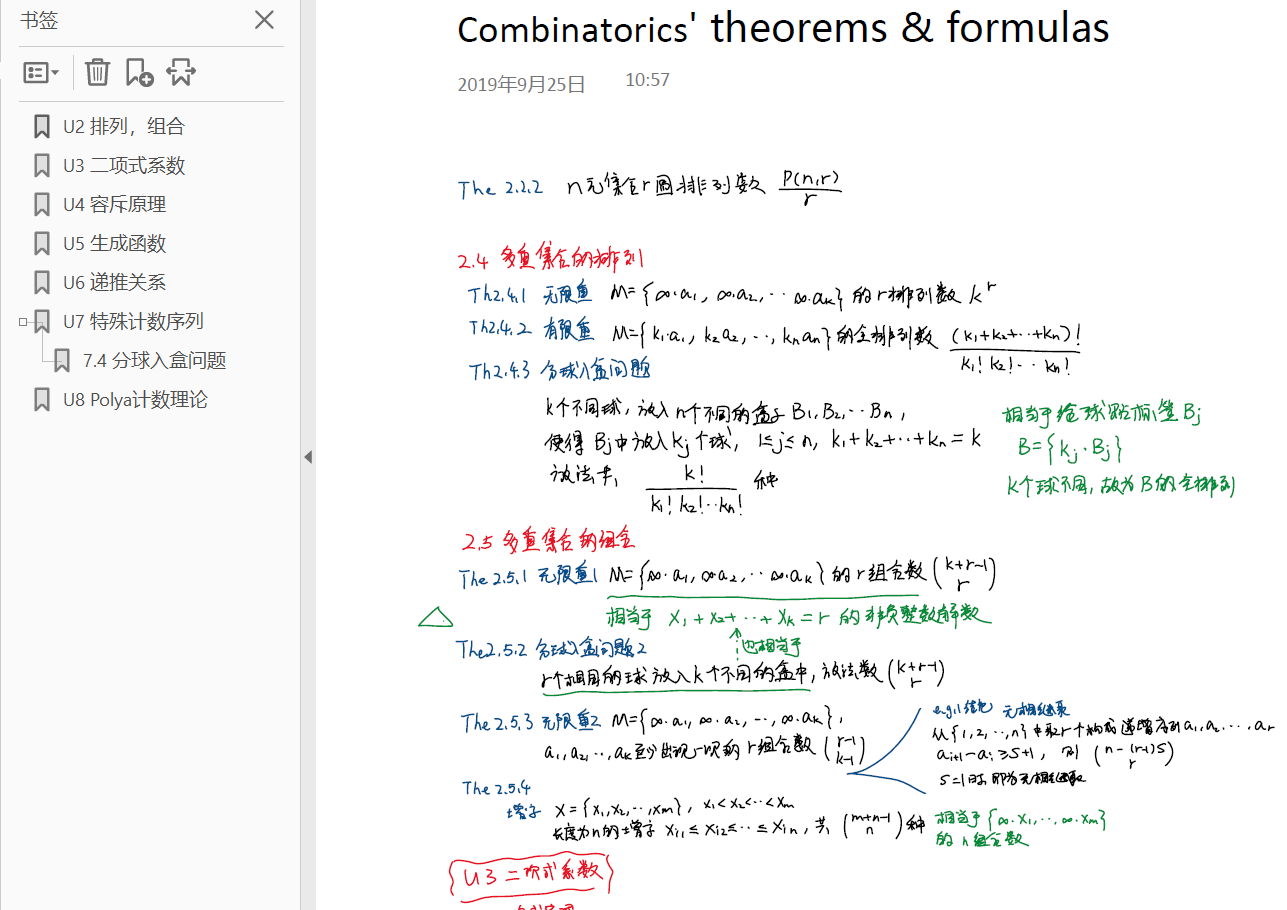 书签
U2 排列，组合
U3 二项式系数
U4 容斥原理
U5 生成函数
U6 递推关系
U7 特殊计数序列
7.4 分球入盒问题
U8 Polya计数理论
Combinatorics' theorems & formulas
2019年9月25日 10:57
The 2.2.2 n元集合r圆排列数 P(n,r)/r
2.4 多重集合的排列
Th2.4.1 无限重 M={∞·a₁, ∞·a₂, ··· ∞·aₖ} 的r排列数 kʳ
Th2.4.2 有限重 M={k₁·a₁, k₂a₂, ···, kₙaₙ}的全排列数 (k₁+k₂+··+kₙ)!/k₁!k₂!···kₙ!
Th2.4.3 分球入盒问题
k个不同球，放入n个不同的盒子B₁,B₂,··Bₙ，
使得 Bⱼ中放入kⱼ个球，1≤j≤n, k₁+k₂+··+kₙ=k
放法共 k!/k₁!k₂!··kₙ! 种
相当于给球贴标签Bⱼ
B={kⱼ·Bⱼ}
k个球不同，故为B的全排列
2.5 多重集合的组合
The 2.5.1 无限重1 M={∞·a₁, ∞·a₂, ·· ∞·aₖ}的r组合数 (k+r-1 r)
相当于 x₁+x₂+··+xₖ=r 的非负整数解数
也相当于
The2.5.2 分球入盒问题2
r个相同的球放入k个不同的盒中，放法数 (k+r-1 r)
The 2.5.3 无限重2 M={∞·a₁, ∞·a₂, ··, ∞·aₖ}，
a₁,a₂,··,aₖ至少出现一次的r组合数 (r-1 k-1)
e.g.1 无相继取
从{1,2,··,n}中取r个构成递增序列a₁,a₂,···,aᵣ
aᵢ₊₁-aᵢ≥s+1，则 (n-(r-1)s r)
s=1时，即为无相继取
The 2.5.4
增字 X={x₁,x₂,··,xₘ}，x₁<x₂<··<xₘ
长度为n的增字 xᵢ₁≤xᵢ₂≤··≤xᵢₙ，共 (m+n-1 n) 种
相当于{∞·x₁,··,∞·xₘ}
的n组合数
U3 二次式系数